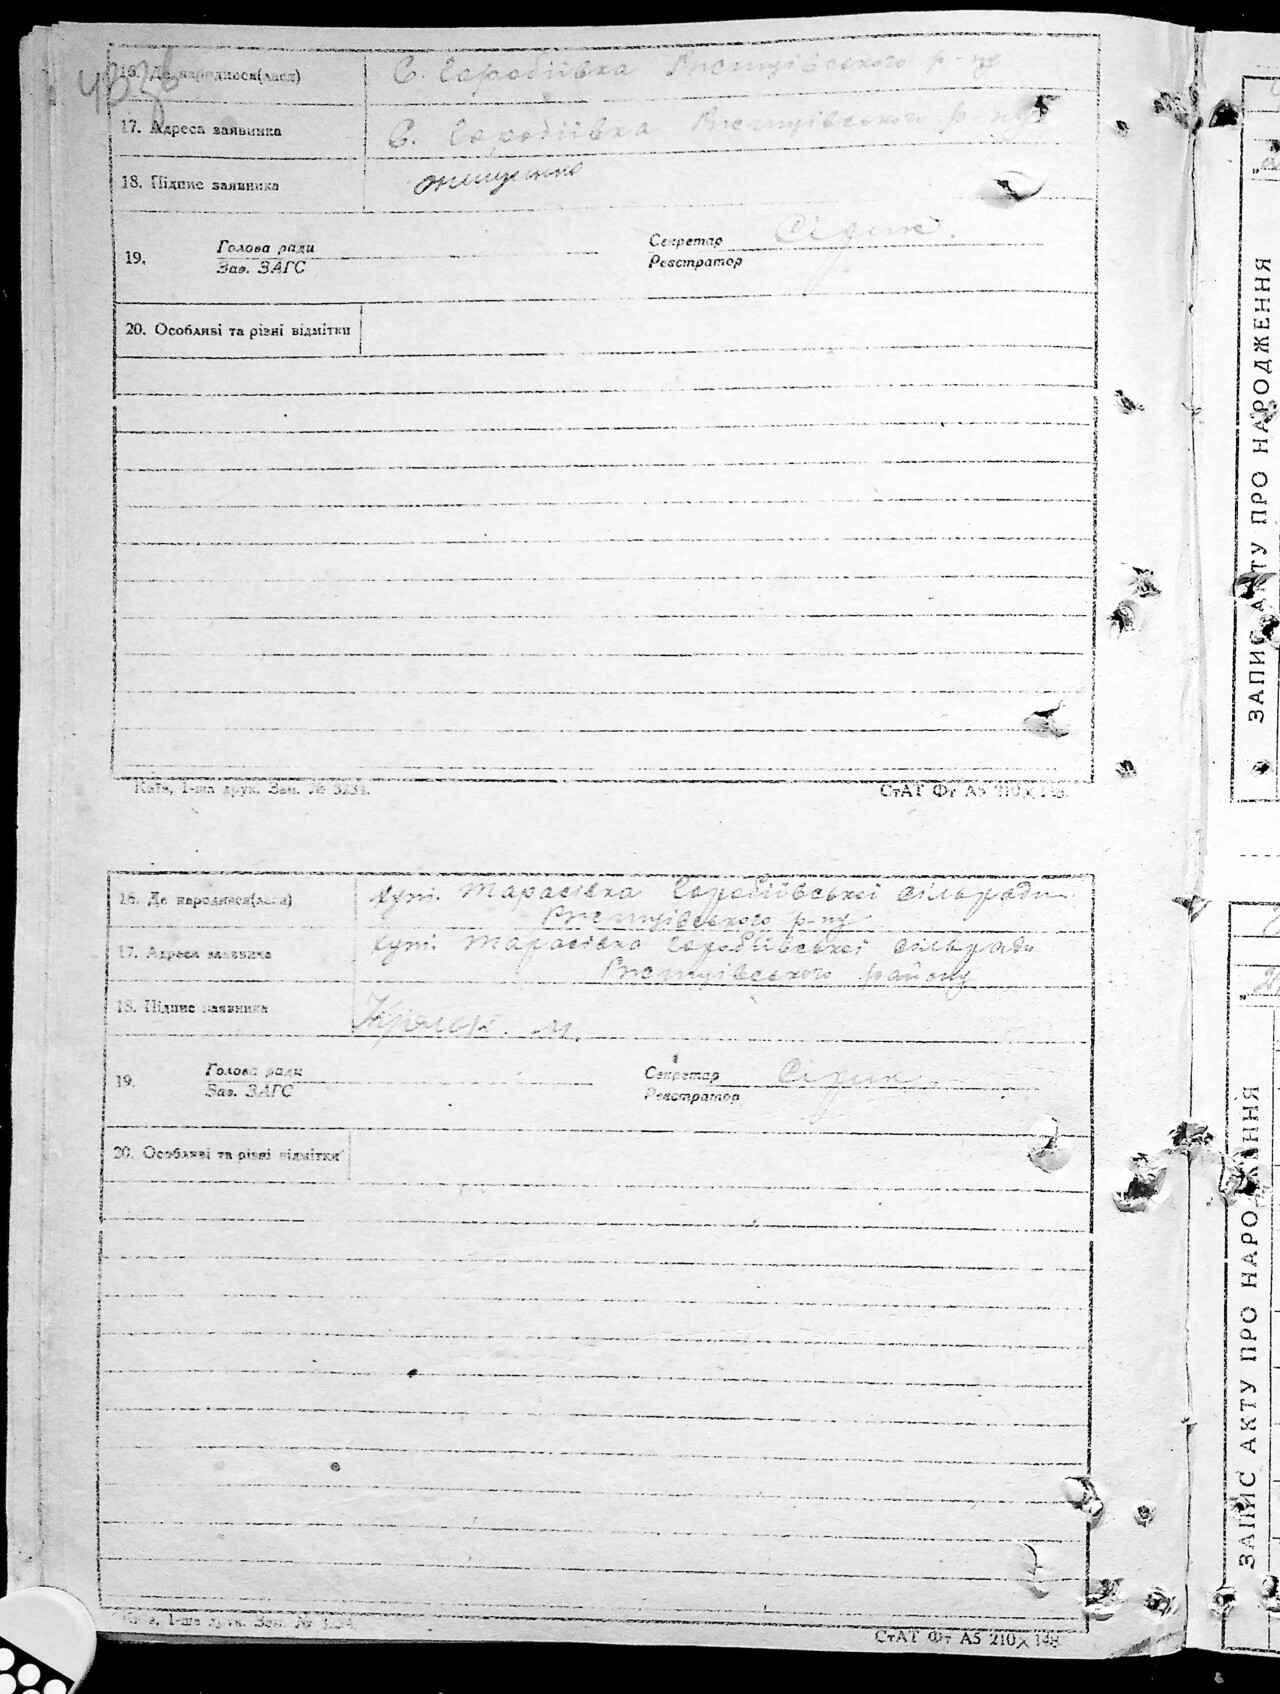 16. Де народився(лася) С. Горобіївка Ржищівського р-ну
17. Адреса заявника С. Горобіївка Ржищівського р-ну
18. Підпис заявника
19. Голова ради Секретар Сірик.
Зав. ЗАГС Реєстратор
20. Особливі та різні відмітки
Київ, 1-ша друк. Зам. № 3234.
СтАТ Фт А5 210×148.
16. Де народився(лася) хут. Тарасівка Горобіївської сільради
Ржищівського р-ну
17. Адреса заявника хут. Тарасівка Горобіївської сільради
Ржищівського району
18. Підпис заявника М.
19. Голова ради Секретар Сірик.
Зав. ЗАГС Реєстратор
20. Особливі та різні відмітки
1-ша друк. Зам. № 3234.
СтАТ Фт А5 210×148
ЗАПИС АКТУ ПРО НАРОДЖЕННЯ
ЗАПИС АКТУ ПРО НАРОДЖЕННЯ